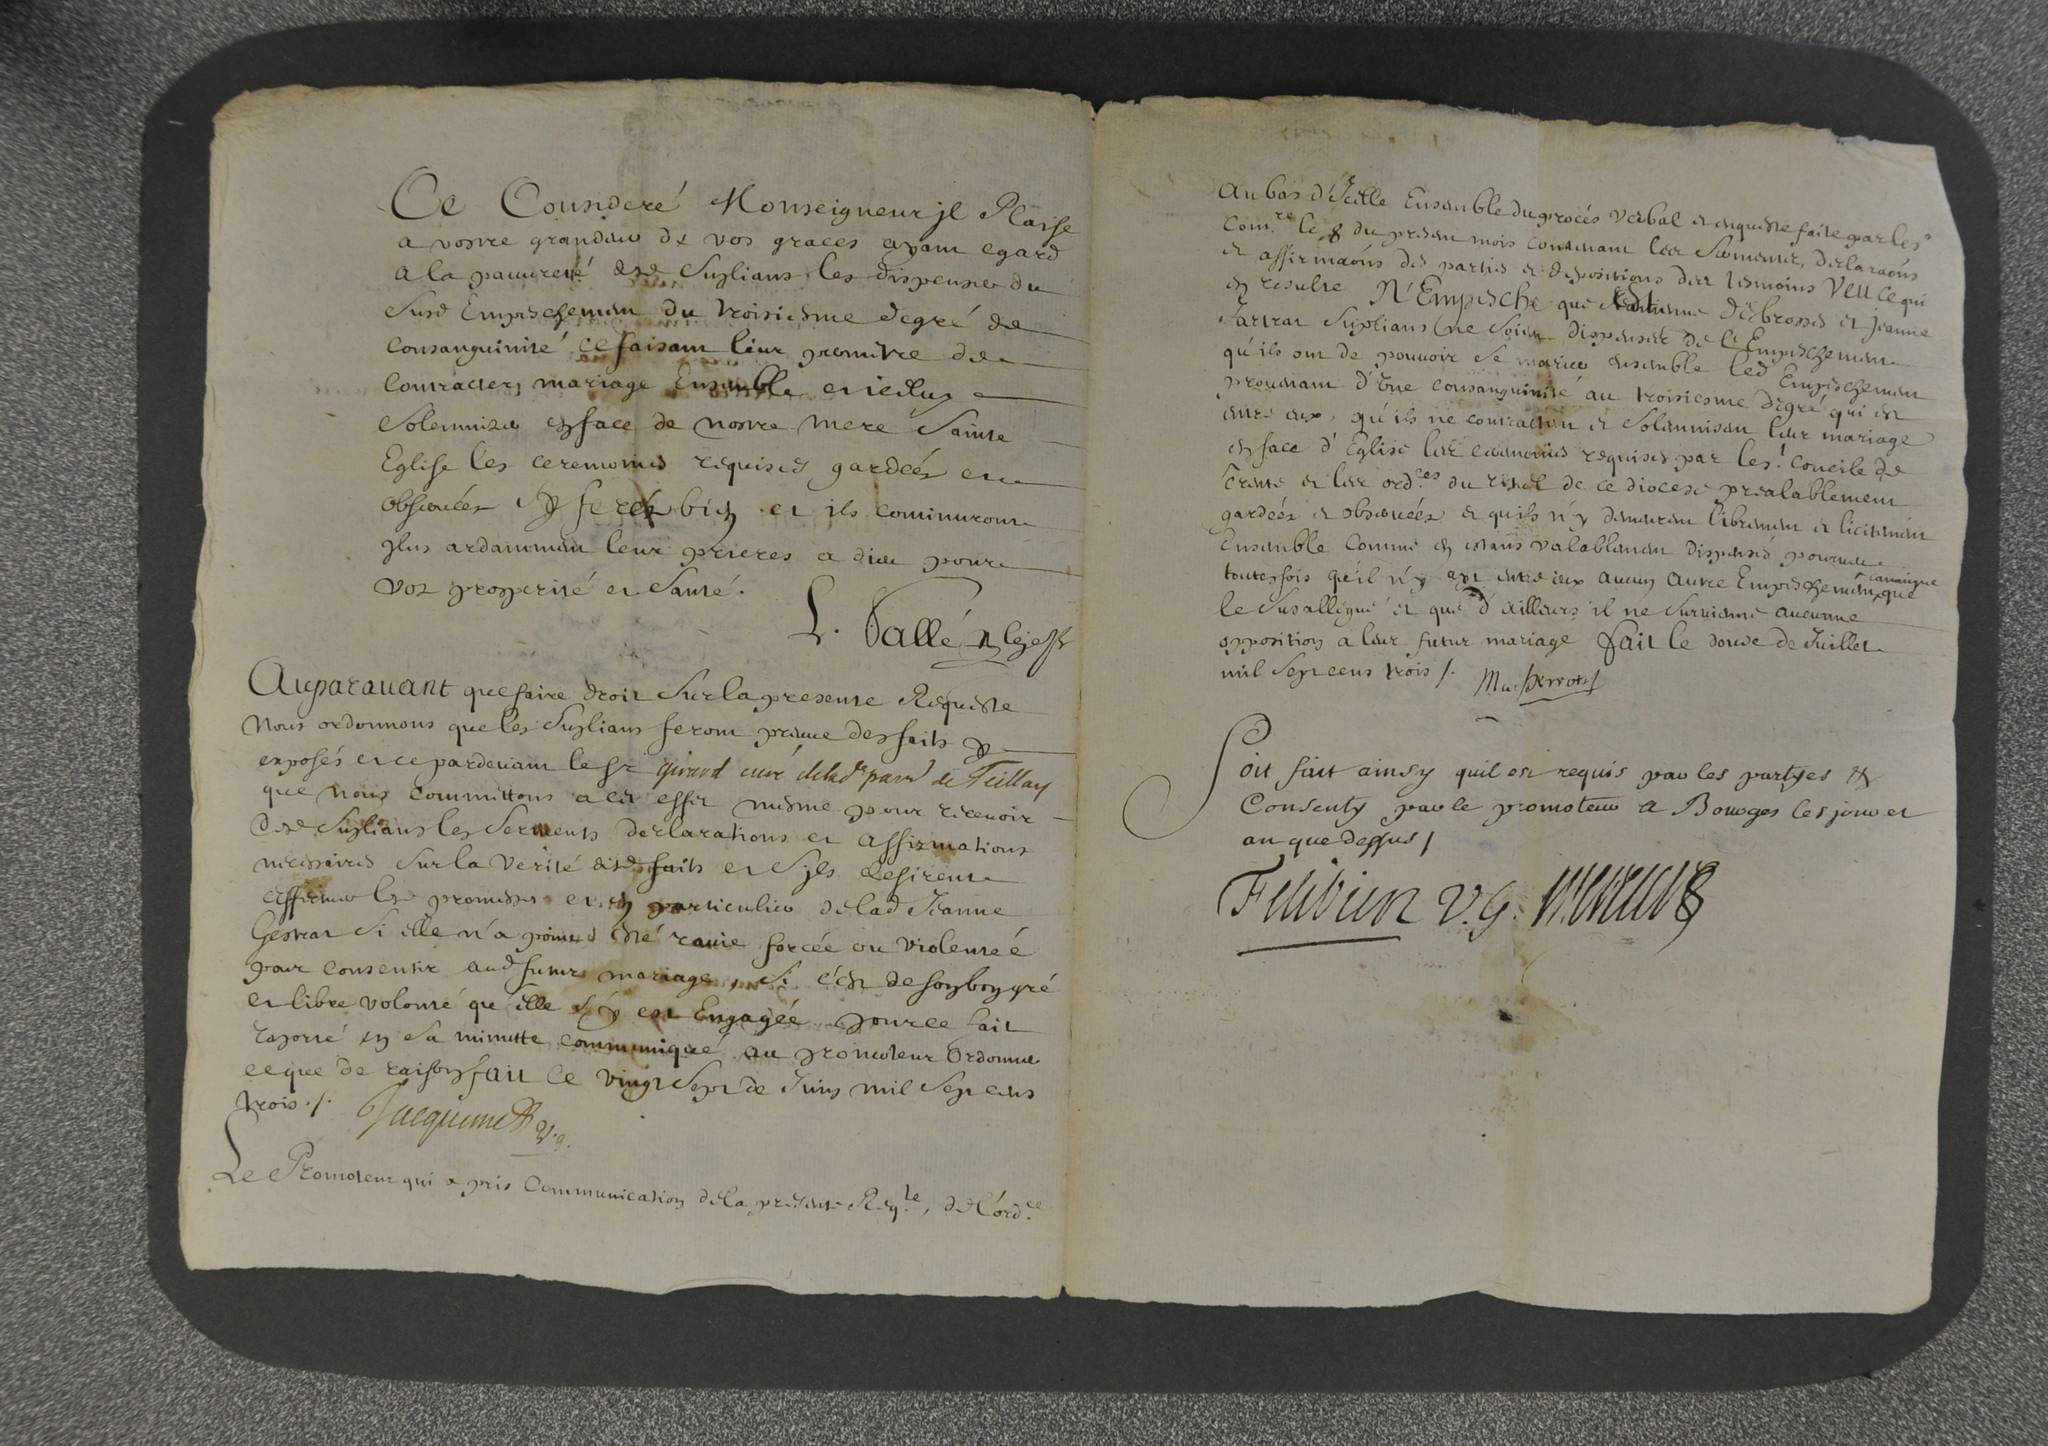 Ce Consideré Monseigneur il Plaise
a vostre grandeur de vos graces ayant egard
a la pauvreté desd Suplians les dispenser du
Susd Empeschement du troisiesme degré de
Consanguinité ce faisant leur permettre de
Contracter mariage Ensemble et icelluy
Solemnizer en face de nostre mere Sainte
Eglise les ceremonies requises gardées et
observées Et ferez bien et ils continuront
plus ardamment leur prieres a dieu pour
vos prosperité et Santé.
L. Vallé
Auparavant que faire droit Sur la presente Requeste
Nous ordonnons que les Suplians feront preuve des faits y
exposés et ce pardevant le Sr girard curé delad parr de Teillay
que nous committons a cet effet mesme pour recevoir
desd Suplians les Serments declarations et affirmations
necessaires Sur la verité desd faits et S'ils desirent
effectuer les promesses et en particulier delad Jeanne
Si elle n'a point esté ravie forcée ou violentée
pour consentir aud futur mariage, Si c'est de son bon gré
et libre volonté qu'elle S'y est Engagée pour ce fait
raporté en Sa minutte communiqué au promoteur Ordonner
ce que de raison fait ce vingt Sept de Juin mil Sept cens
trois /. Jacquemet v.g.
Le Promoteur qui a pris Communication de la presente Reqte, de l'ordce
au bas d'Icelle Ensemble du procés verbal et enqueste faite par led
Comre le 8 du present mois contenant les Serments, declaraōns
et affirmaōns des parties et depositions des tesmoins Veu ce qui
en resulte N'Empesche que Debrosses et Jeanne
Suplians ne Soient dispensez de l'Empeschement
qu'ils ont de pouvoir Se marier ensemble led Empeschement
provenant d'Une consanguinité au troisiesme degré qui est
entre eux, qu'ils ne contractent et Solemnisent leur mariage
en face d'Eglise les ceremonies requises par le St Concile de
Trente et les ordces du rituel de ce diocese prealablement
gardées et observées et qu'ils n'y demeurent librement et licitement
Ensemble comme en estans valablement dispensés pourveu
touttesfois qu'il n'y ayt entre eux aucun autre Empeschement canonique que
le Susallegué et que d'ailleurs il ne Survienne aucunne
opposition a leur futur mariage fait le douze de Juillet
mil Sept cens trois /. Perrotet
Soit fait ainsy quil est requis par les partyes et
Consenty par le promoteur a Bourges les jour et
an que dessus /
Felibien v.g.